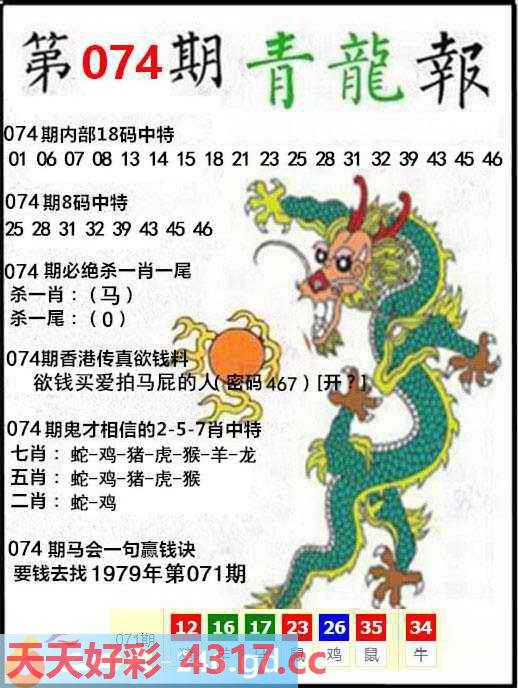 第074期青龍報
074期内部18码中特
01 06 07 08 13 14 15 18 21 23 25 28 31 32 39 43 45 46
074期8码中特
25 28 31 32 39 43 45 46
074期必绝杀一肖一尾
杀一肖：（马）
杀一尾：（0）
074期香港传真欲钱料
欲钱买爱拍马屁的人（密码467）[开？]
074期鬼才相信的2-5-7肖中特
七肖：蛇-鸡-猪-虎-猴-羊-龙
五肖：蛇-鸡-猪-虎-猴
二肖：蛇-鸡
074期马会一句赢钱诀
要钱去找1979年第071期
12 16 17 23 26 35 34
071期
鼠 鸡 鼠 牛
天天好彩 4317.cc